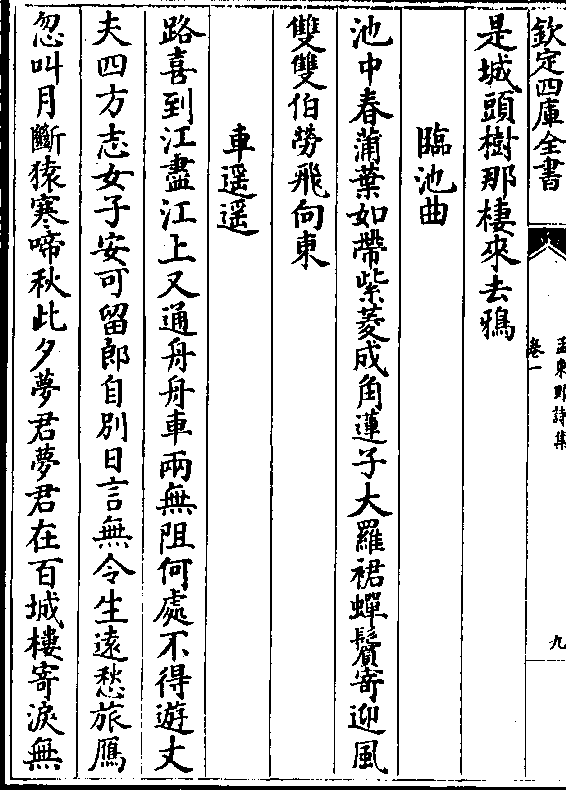 欽定四庫全書
卷一
孟東野詩集
九
是城頭樹那棲來去鴉
臨池曲
池中春蒲葉如帶紫菱成角蓮子大羅裙蟬鬢寄迎風
雙雙伯勞飛向東
車遥遥
路喜到江盡江上又通舟舟車兩無阻何處不得遊丈
夫四方志女子安可留郎自别日言無令生遠愁旅鴈
忽叫月斷猿寒啼秋此夕夢君夢君在百城樓寄淚無